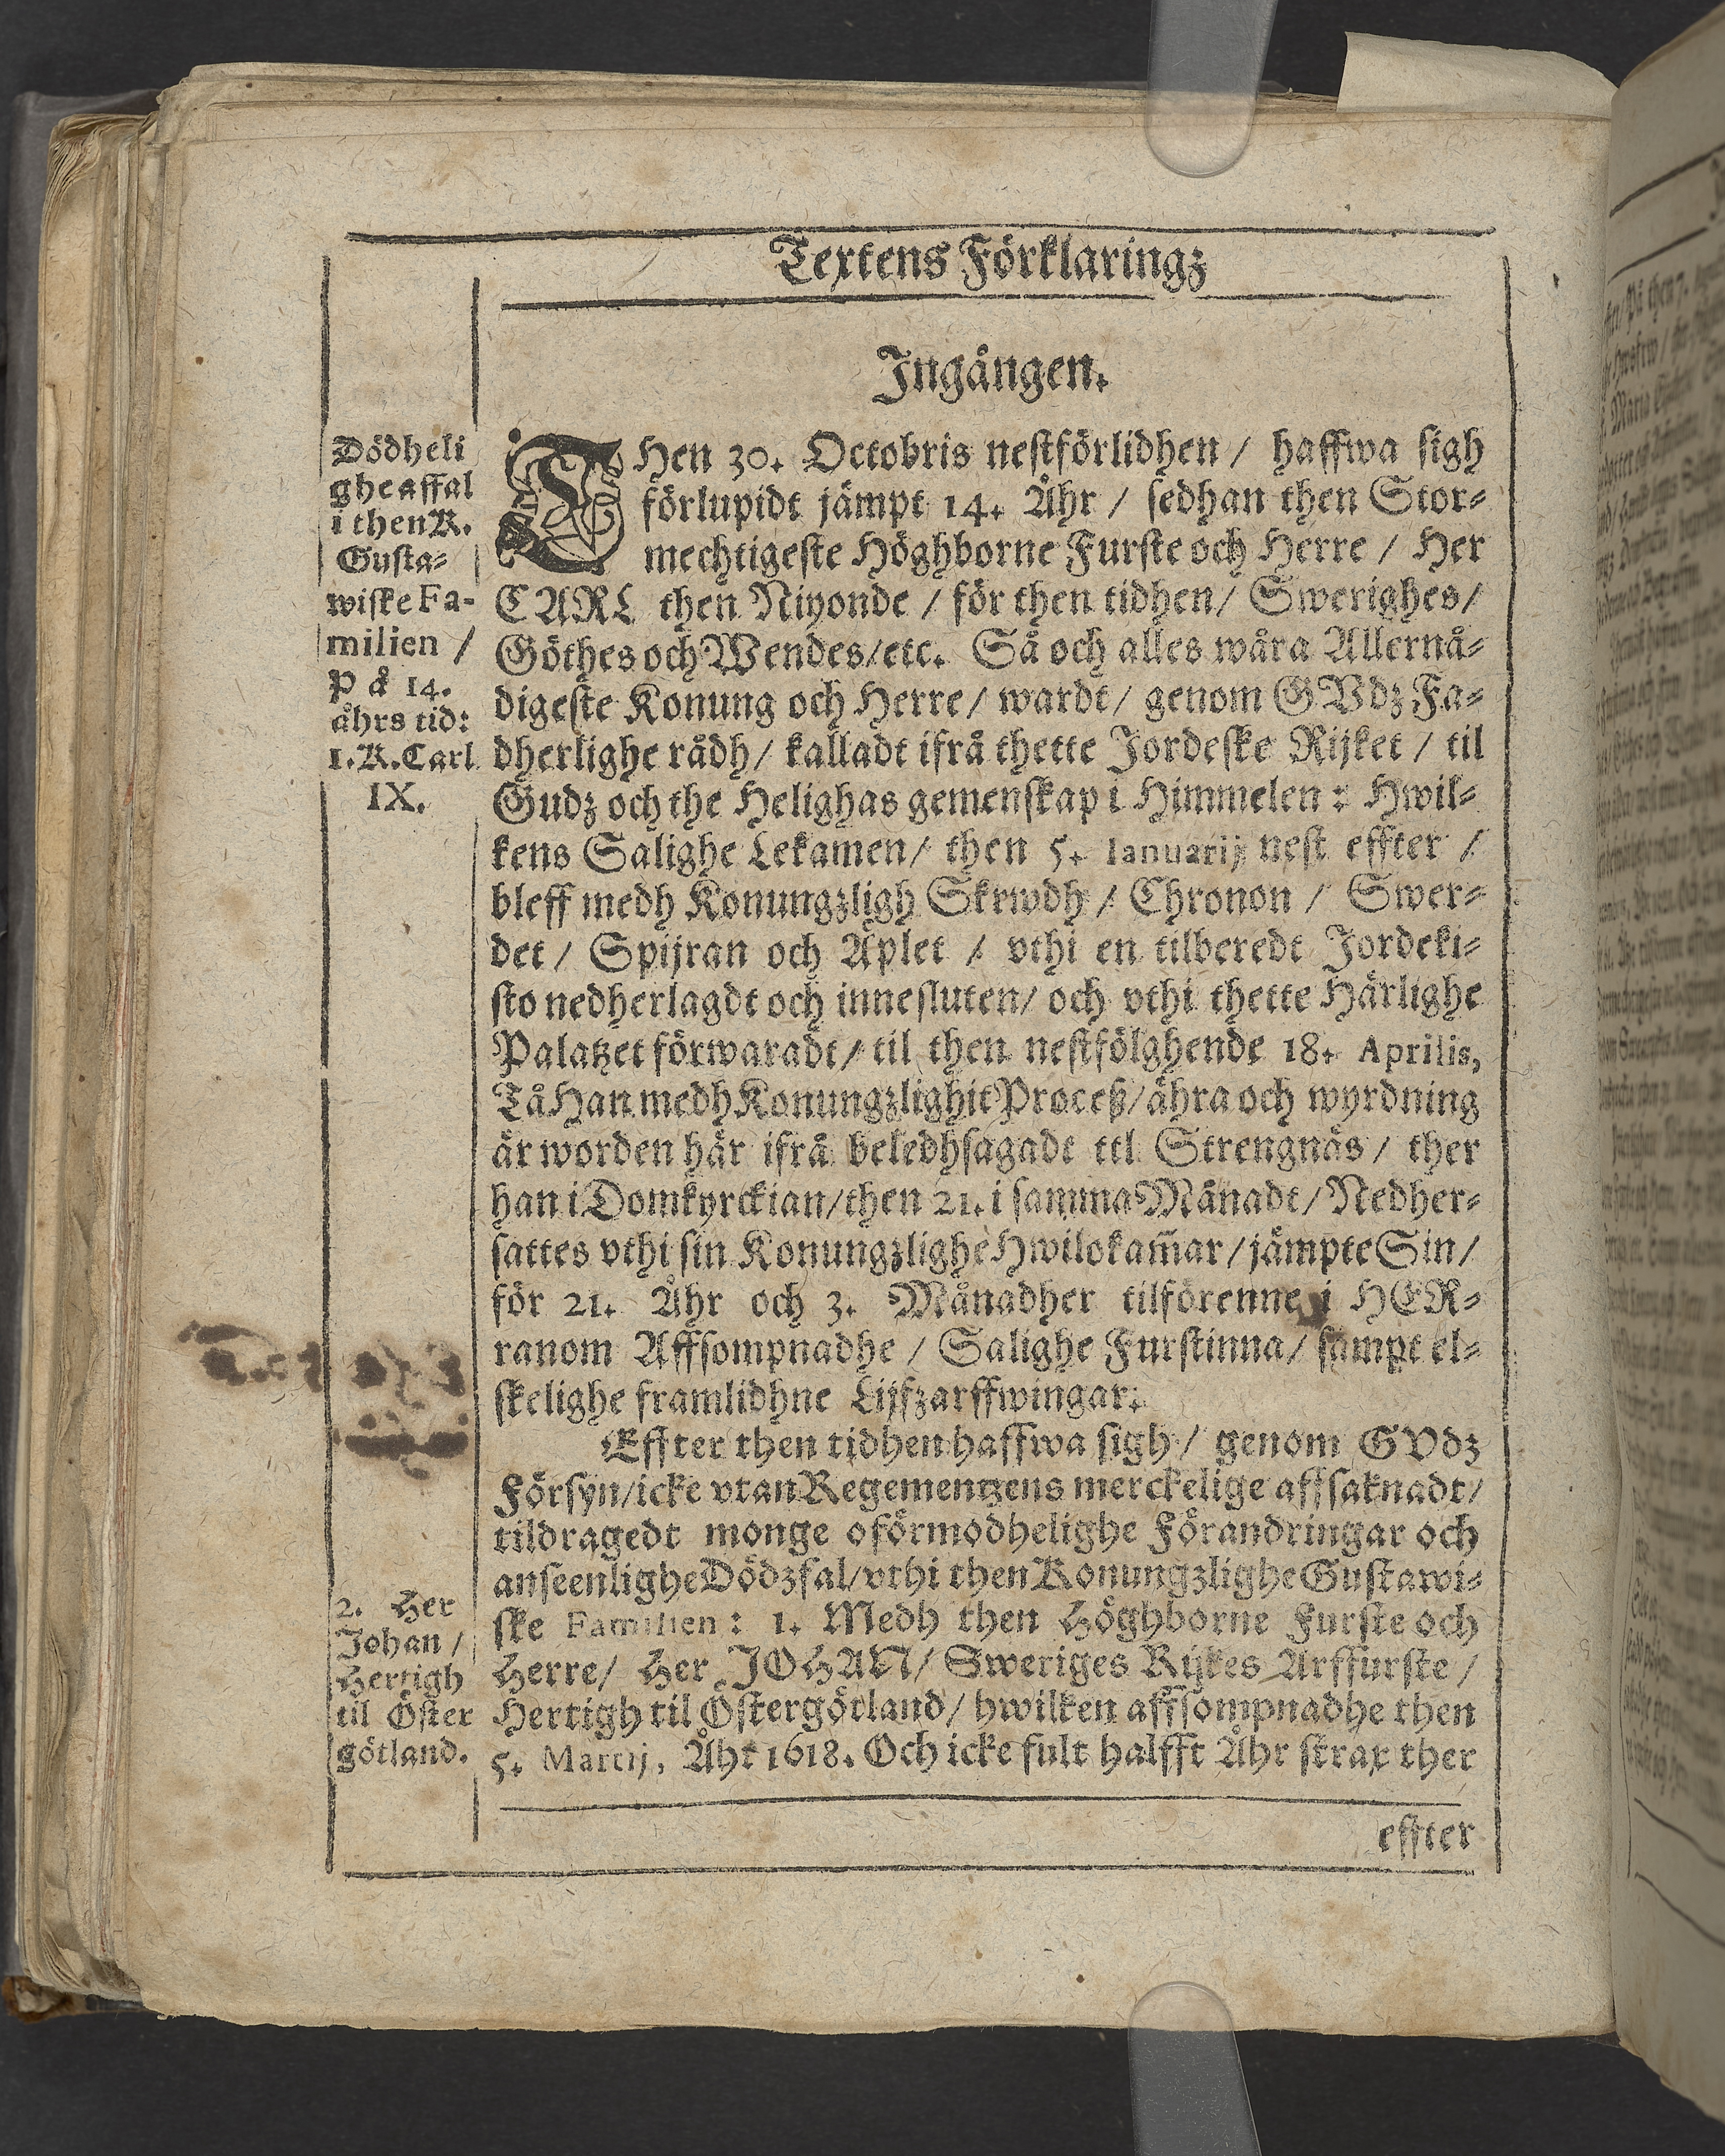 Textens Förklaringz
Ingången.
Dödheli
ghe affal
i then K.
Gusta-
wiske Fa-
milien /
på 14.
åhrs tid:
1. K. Carl
IX.
THen 30. Octobris nestförlidhen / haffwa sigh
förlupidt jämpt 14. Åhr / sedhan then Stor-
mechtigeste Höghborne Furste och Herre / Her
CARL then Niyonde / för then tidhen / Swerighes /
Göthes och Wendes / etc. Så och alles wåra Allernå-
digeste Konung och Herre / wardt / genom GVdz Fa-
dherlighe rådh / kalladt ifrå thette Jordeske Rijket / til
Gudz och the Helighas gemenskap i Himmelen: Hwil-
kens Salighe Lekamen / then 5. Ianuarij nest effter /
bleff medh Konungzligh Skrwdh / Chronon / Swer-
det / Spijran och Äplet / vthi en tilberedt Jordeki-
sto nedherlagdt och innesluten / och vthi thette Härlighe
Palatzet förwaradt / til then nestfölghende 18. Aprilis,
Tå Han medh Konungzlighit Proceß / ähra och wyrdning
är worden här ifrå beledhsagadt ttl Strengnäs / ther
han i Domkyrckian / then 21. i samma Månadt / Nedher-
sattes vthi sin Konungzlighe Hwilokam̄ar / jämpte Sin /
för 21. Åhr och 3. Månadher tilförenne i HER-
ranom Affsompnadhe / Salighe Furstinna / sampt el-
skelighe framlidhne Lijfzarffwingar.
Effter then tidhen haffwa sigh / genom GVdz
Försyn / icke vtan Regementzens merckelige affsaknadt /
tildragedt monge oförmodhelighe Förandringar och
anseenlighe Dödzfal / vthi then Konungzlighe Gustawi-
ske Familien: 1. Medh then Höghborne Furste och
Herre / Her JOHAN / Sweriges Rijkes Arffurste /
Hertigh til Östergötland / hwilken affsompnadhe then
5. Martij, Åhr 1618. Och icke fult halfft Åhr strax ther
2. Her
Johan /
Hertigh
til Öster
götland.
effter